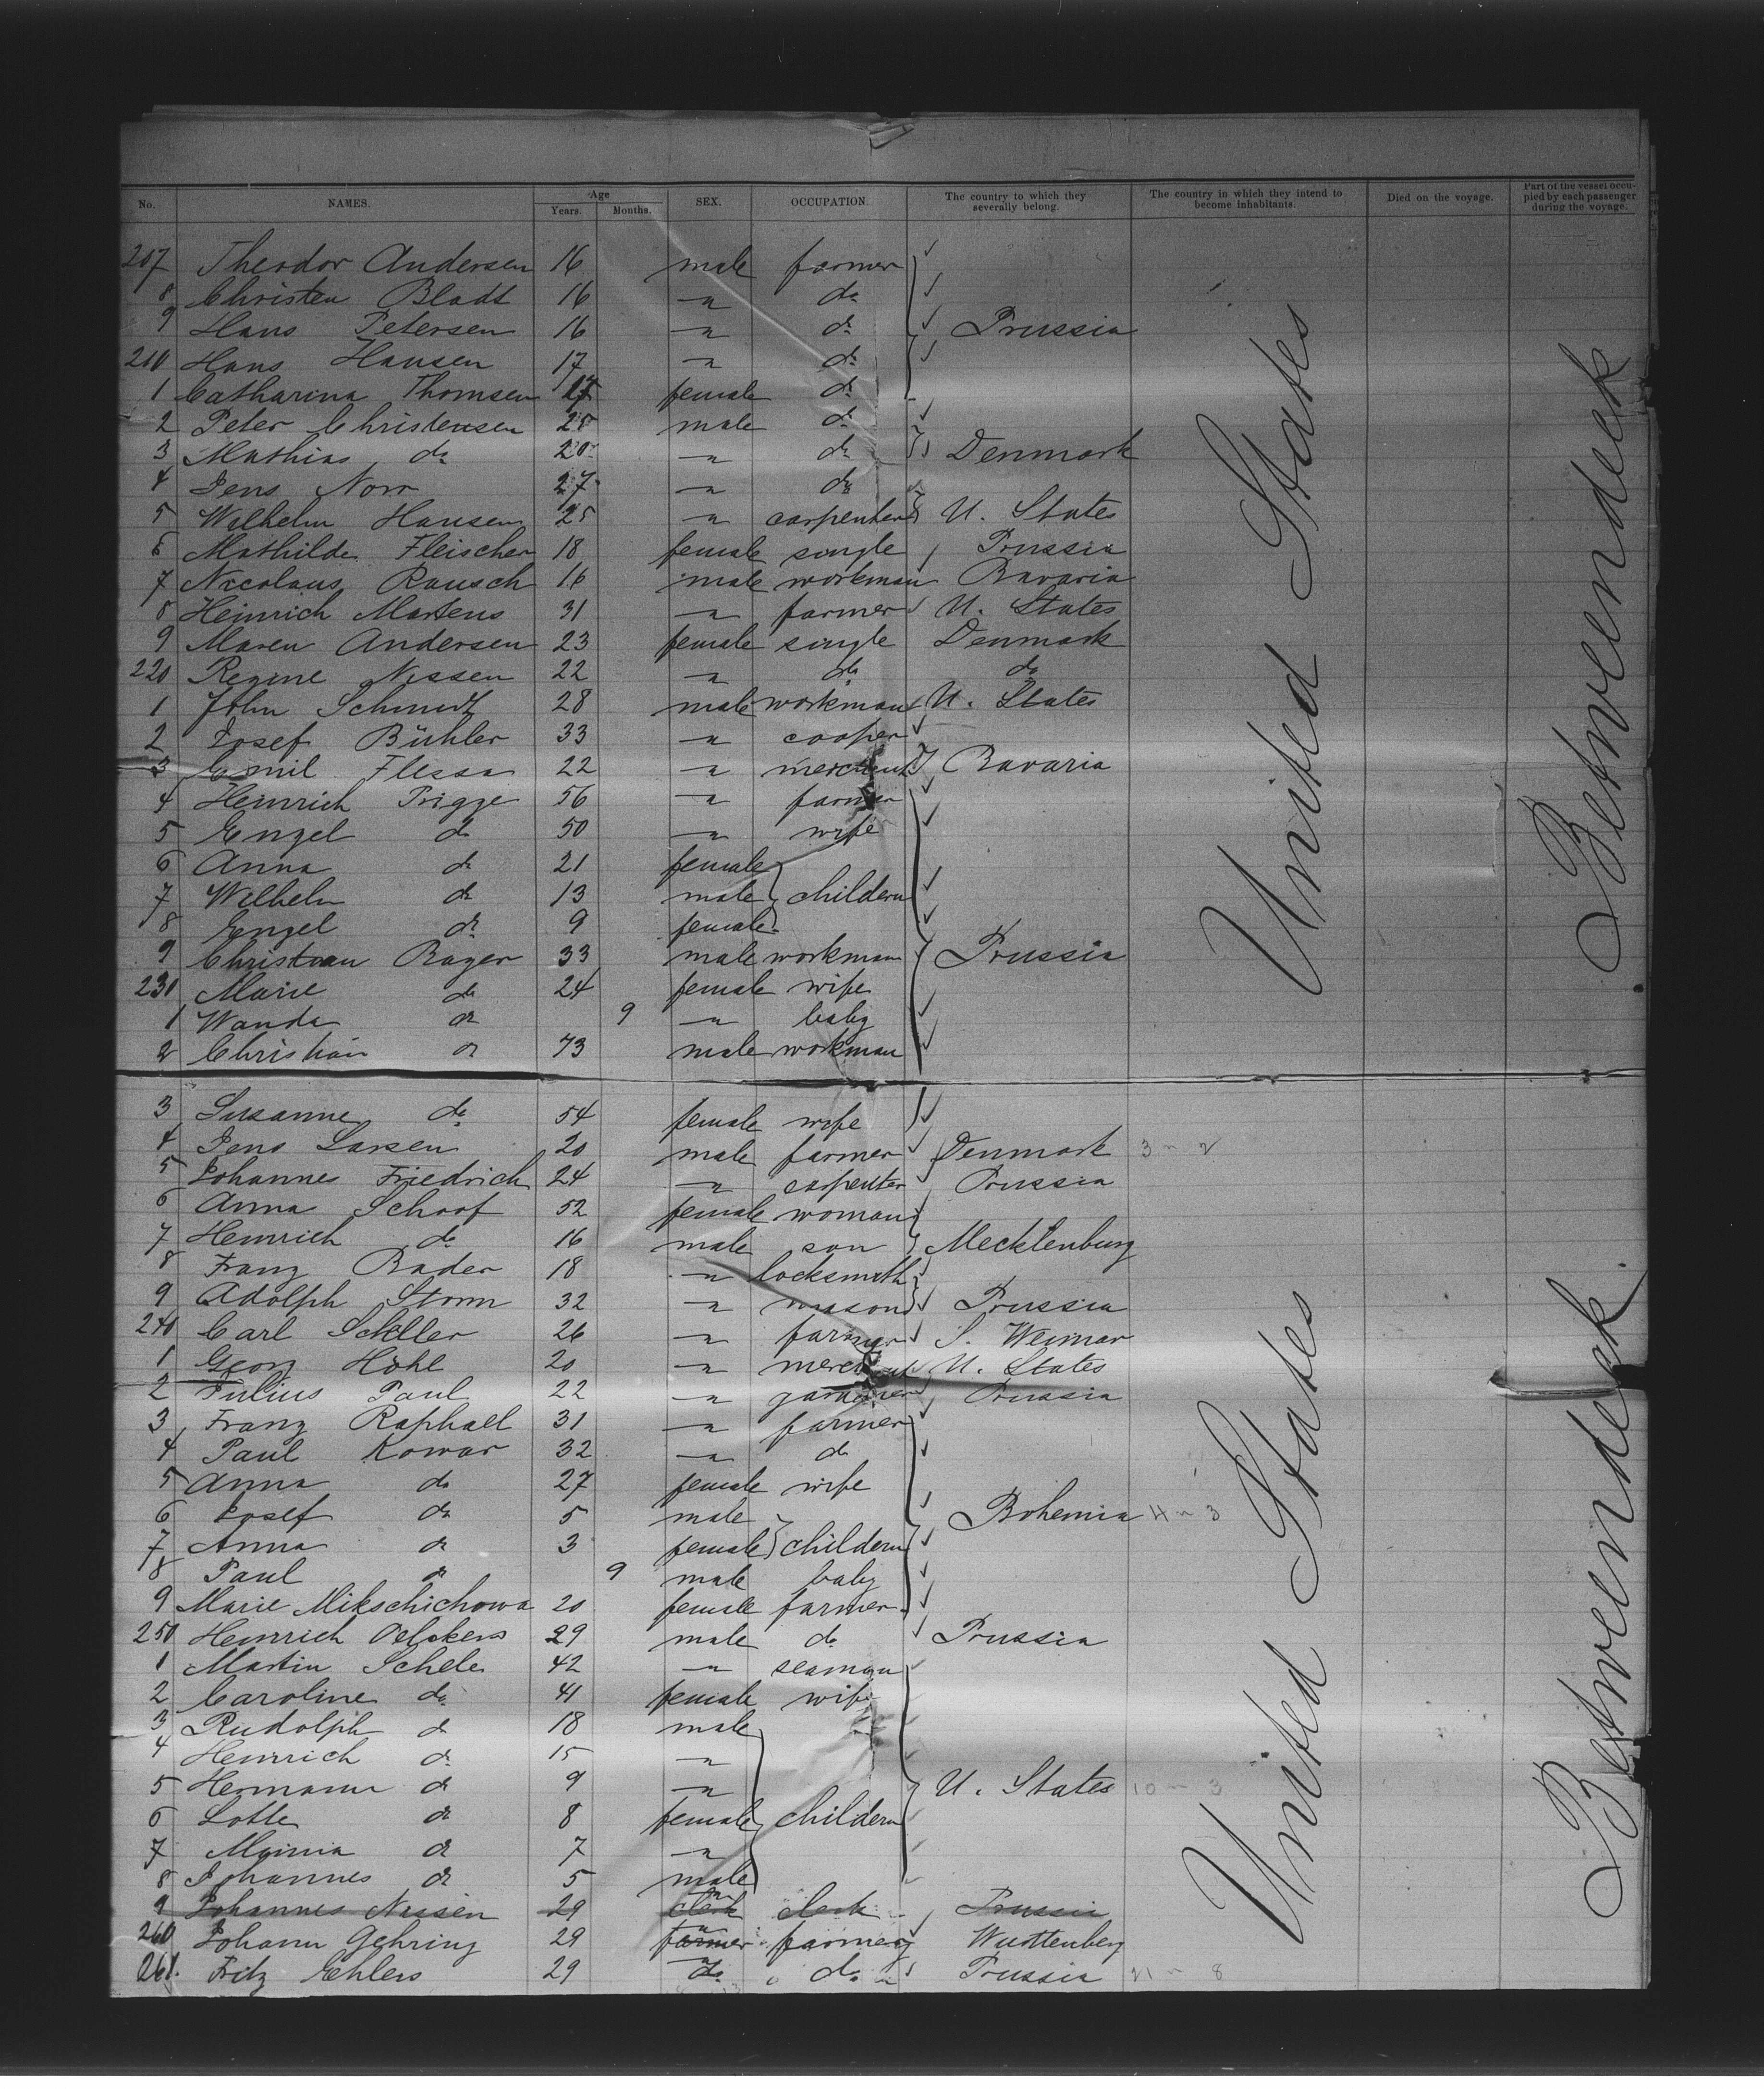 No. NAMES. Age Years. Months. SEX. OCCUPATION. The country to which they severally belong. The country in which they intend to become inhabitants. Died on the voyage. Part of the vessel occupied by each passenger during the voyage.
207 Theodor Andersen 16 male farmer
8 Christen Bladt 16 —"— do
9 Hans Petersen 16 —"— do Prussia
210 Hans Hansen 17 —"— do
1 Catharina Thomsen 17 female do
2 Peter Christensen 28 male do
3 Mathias do 20 —"— do Denmark
4 Jens Norr 27 —"— do
5 Wilhelm Hansen 25 —"— carpenter U. States
6 Mathilde Fleischer 18 female single Prussia
7 Nicolaus Rausch 16 male workman Bavaria
8 Heinrich Martens 31 —"— farmer U. States
9 Maren Andersen 23 female single Denmark
220 Regine Nissen 22 —"— do do
1 John Schmidt 28 male workman U. States
2 Josef Bühler 33 —"— cooper
3 Emil Flessa 22 —"— merchant Bavaria
4 Heinrich Prigge 56 —"— farmer
5 Engel do 50 —"— wife
6 Anna do 21 female
7 Wilhelm do 13 male childern
8 Engel do 9 female
9 Christian Rager 33 male workman Prussia
230 Marie do 24 female wife
1 Wanda do 9 —"— baby
2 Christian do 73 male workman
3 Susanne do 54 female wife
4 Jens Larsen 20 male farmer Denmark 3 - 2
5 Johannes Friedrich 24 —"— carpenter Prussia
6 Anna Schoof 52 female woman
7 Heinrich do 16 male son Mecklenburg
8 Franz Bader 18 —"— locksmith
9 Adolph Storm 32 —"— mason Prussia
240 Carl Scheller 26 —"— farmer S. Weimar
1 Georg Höhl 20 —"— merchant U. States
2 Julius Paul 22 —"— gardner Prussia
3 Franz Raphael 31 —"— farmer
4 Paul Kowar 32 —"— do
5 Anna do 27 female wife
6 Josef do 5 male Bohemia 4 - 3
7 Anna do 3 female childern
8 Paul do 9 male baby
9 Marie Mikschichowa 20 female farmer
250 Heinrich Oelckers 29 male do Prussia
1 Martin Schele 42 —"— seaman
2 Caroline do 41 female wife
3 Rudolph do 18 male
4 Heinrich do 15 —"—
5 Hermann do 9 —"— U. States 10 - 3
6 Lotte do 8 female childern
7 Minna do 7 —"—
8 Johannes do 5 male
9 Johannes Nissen 29 clerk clerk Prussia
260 Johann Gehring 29 farmer farmer Wurttenberg
261. Fritz Ehlers 29 do do Prussia 21 - 8
United States
Betweendeck
United States
Betweendeck